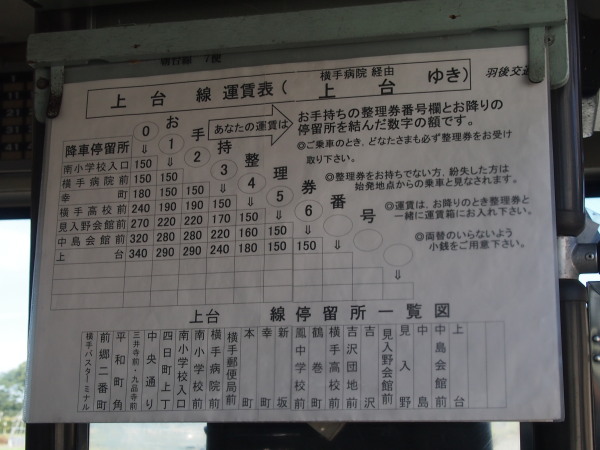 上台 線 運賃表( 横手病院 経由 上台 ゆき) 羽後交通
お手持整理券番号
0 1 2 3 4 5 6
あなたの運賃は
お手持ちの整理券番号欄とお降りの
停留所を結んだ数字の額です。
◎ご乗車のとき、どなたさまも必ず整理券をお受け
取り下さい。
◎整理券をお持ちでない方、紛失した方は
始発地点からの乗車と見なされます。
◎運賃は、お降りのとき整理券と
一緒に運賃箱にお入れ下さい。
◎両替のいらないよう
小銭をご用意下さい。
降車停留所 ⇓ ⇓ ⇓ ⇓ ⇓ ⇓ ⇓ ⇓ ⇓
南小学校入口 150
横手病院前 150 150
幸町 180 150 150
横手高校前 240 190 190 150
見入野会館前 270 220 220 170 150
中島会館前 320 280 280 220 160 150
上台 340 290 290 240 180 150 150
上台 線停留所一覧図
横手バスターミナル
前郷二番町
平和町角
三井寺前・九品寺前
中央通り
四日町上丁
南小学校入口
南小学校前
横手病院前
横手郵便局前
本町
幸町
新坂
鳳中学校前
鶴巻町
横手高校前
吉沢団地前
吉沢
見入野会館前
見入野
中島
中島会館前
上台